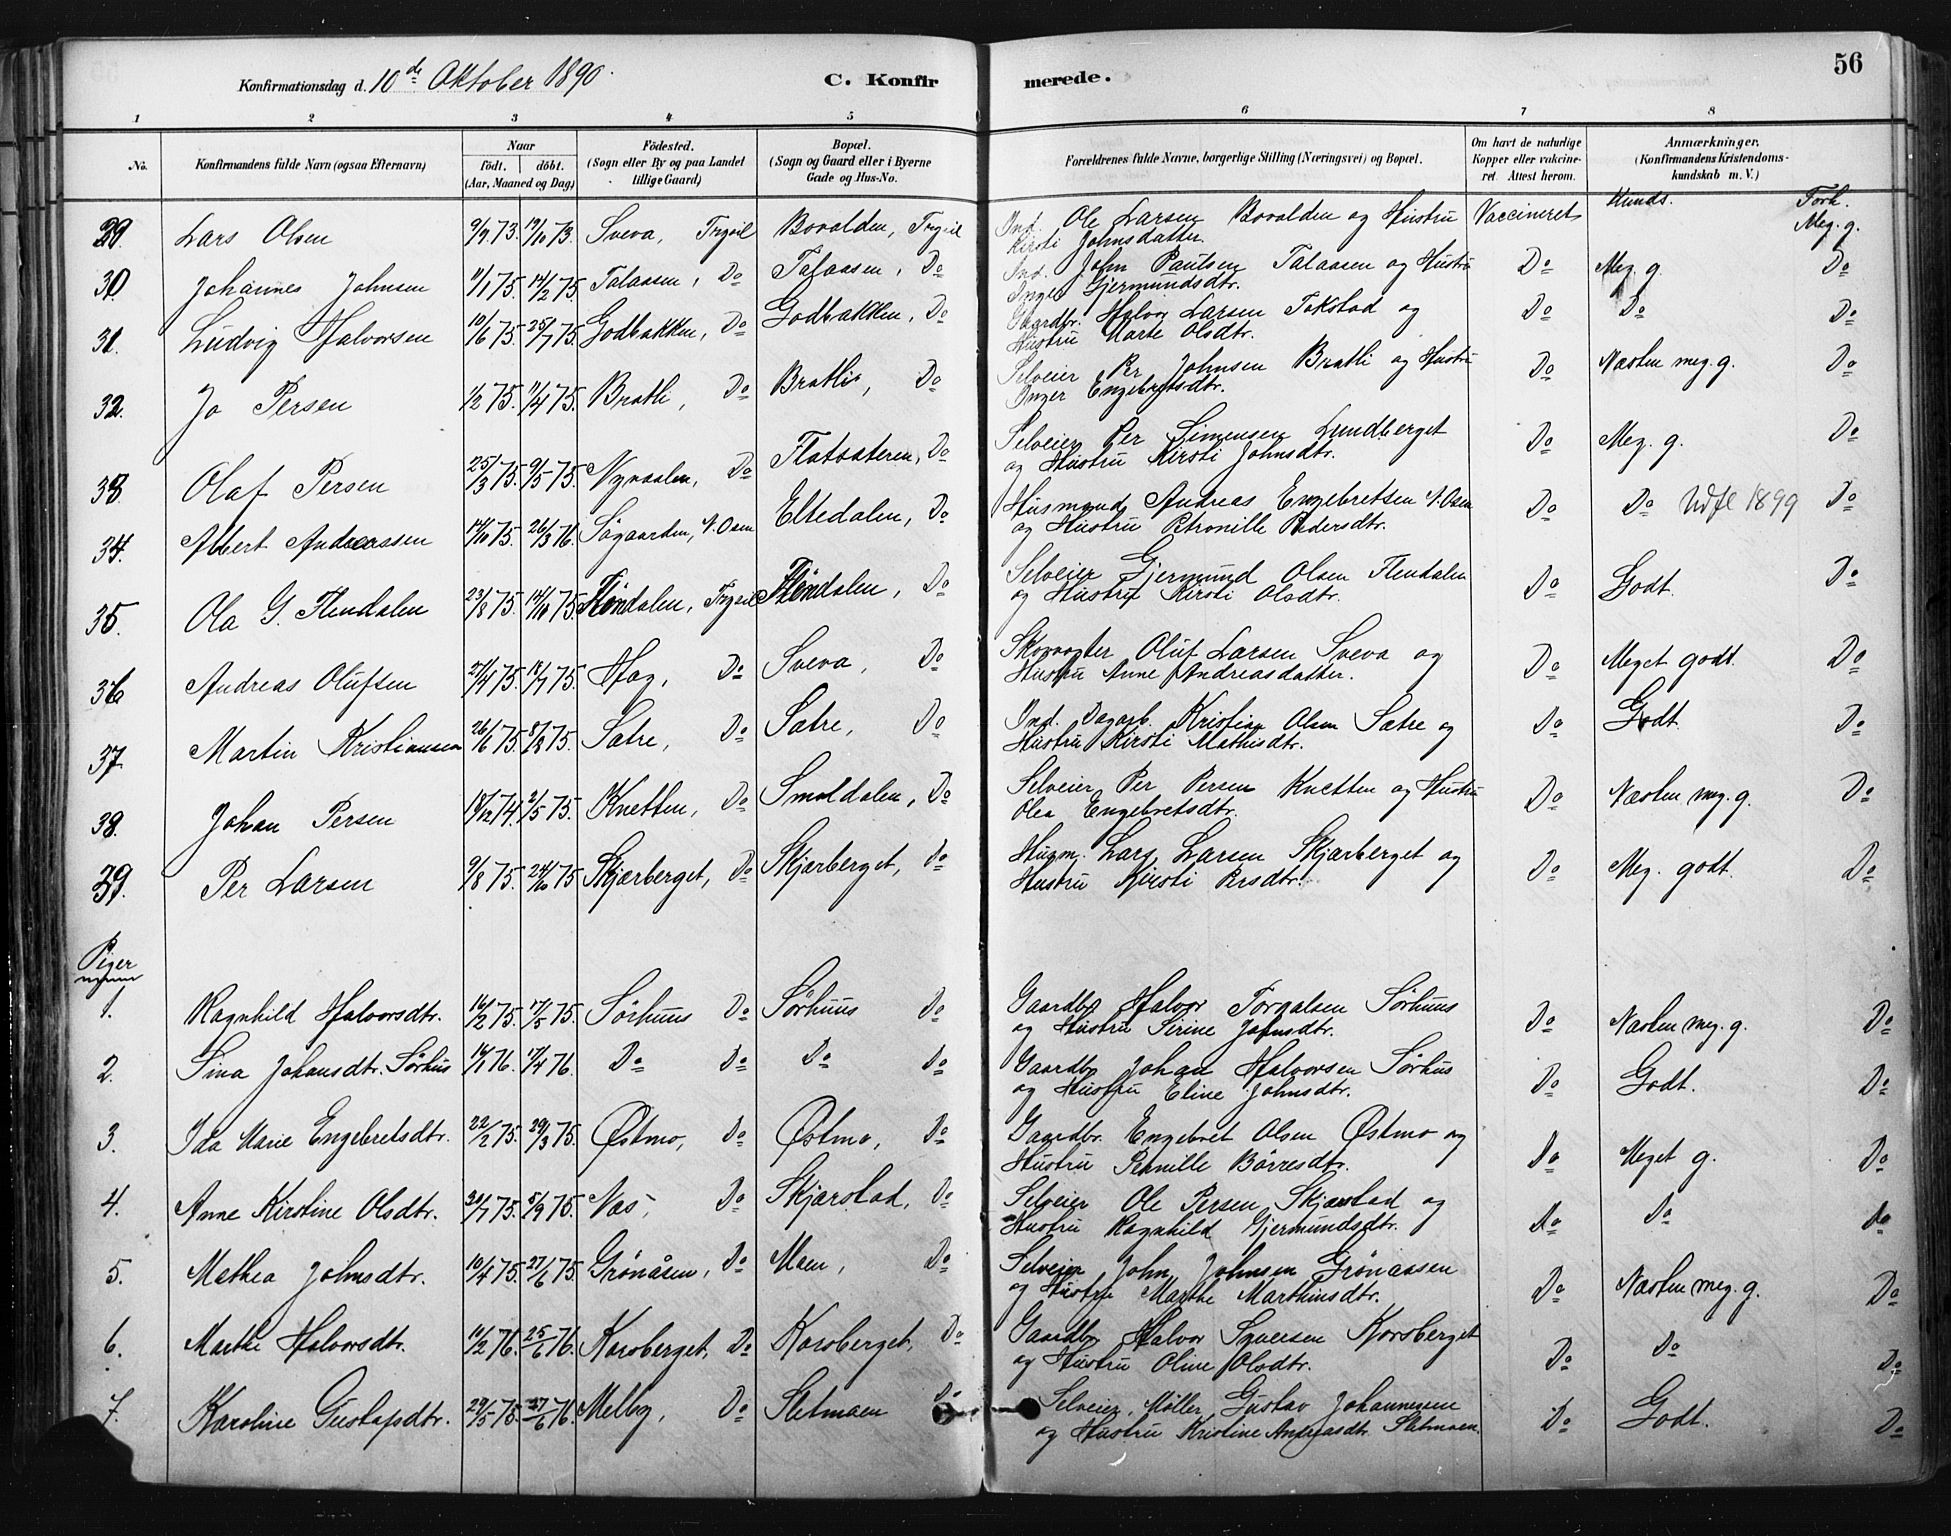 56
Konfirmationsdag d. 10de Oktober 1890.
C. Konfirmerede.
1 2 3 4 5 6 7 8
No.
Konfirmandens fulde Navn (ogsaa Efternavn)
Naar
födt. döbt.
(Aar, Maaned og Dag)
Födested.
(Sogn eller By og paa Landet
tillige Gaard)
Bopæl.
(Sogn og Gaard eller i Byerne
Gade og Hus-No.
Forældrenes fulde Navne, borgerlige Stilling (Næringsvei) og Bopæl.
Om havt de naturlige
Kopper eller vakcine-
ret. Attest herom.
Anmærkninger.
(Konfirmandens Kristendoms-
kundskab m. V.)
Kunds. Forh.
29. Lars Olsen 9/9 73. 19/10 73. Sveva, Trysil Bovalden, Trysil Ind. Ole Larsen Bovalden og Hustru Vaccineret Meg. g.
Kirsti Johnsdatter.
30. Johannes Johnsen 11/1 75. 14/2 75. Talaasen, Do Talaasen, Do Ind. John Paulsen Talaasen og Hustru Do Meg. g. Do
Inger Gjermundsdtr.
31. Ludvig Halvorsen 10/6 75. 25/7 75. Godbakken, Do Godbakken, Do Gaardbr. Halvor Larsen Tokstad og Do Do Do
Hustru Marte Olsdtr.
32. Jo Persen 1/2 75. 11/4 75. Bratli, Do Bratli, Do Selveier Per Johnsen Bratli og Hustru Do Næsten meg. g. Do
Inger Engebretsdtr.
33. Olaf Persen 25/3 75. 9/5 75. Nysaalen, Do Flatsateren, Do Selveier Per Simensen Lundberget Do Meg. g. Do
og Hustru Kirsti Johnsdtr.
34. Albert Andreassen 14/10 75. 26/3 76. Søgaarden, N. Osen Eltedalen, Do Husmand Andreas Engebretsen N. Osen Do Do Udfl 1899 Do
og Hustru Petronille Pedersdtr.
35. Ola G. Flendalen 23/8 75. 14/10 75. Flendalen, Trysil Flendalen, Do Selveier Gjermund Olsen Flendalen Do Godt. Do
og Hustru Kirsti Olsdtr.
36 Andreas Olufsen 27/4 75. 18/7 75. Hag, Do Sveva, Do Skovvogter Oluf Larsen Sveva og Do Meget godt. Do
Hustru Anne Andreasdatter.
37 Martin Kristiansen 26/6 75. 8/8 75. Satre, Do Satre, Do Ind. Dagarb. Kristian Olsen Satre og Do Godt. Do
Hustru Kirsti Mathisdtr.
38. Johan Persen 18/12 74. 2/5 75. Knetten, Do Smoldalen, Do Selveier Per Persen Knetten og Hustru Do Næsten meg. g. Do
Olea Engebretsdtr.
39. Per Larsen 9/8 75. 24/10 75 Skjærberget, Do Skjærberget, Do Husm. Lars Larsen Skjærberget og Do Meg. godt. Do
Hustru Kjersti Persdtr.
Piger
1. Ragnhild Halvorsdtr. 16/2 75. 17/5 75. Sørhuus Do Sørhuus Do Gaardbr Halvor Torgalsen Sørhuus Do Næsten meg. g. Do
og Hustru Serine Johnsdtr.
2. Sina Johansdtr. Sørhus 14/1 76. 17/4 76. Do Do Do Do Gaardbr Johan Halvorsen Sørhus Do Godt. Do
og Hustru Eline Johnsdtr.
3. Ida Marie Engebretsdtr. 22/2 75. 29/3 75. Østmo, Do Østmo, Do Gaardbr. Engebret Olsen Østmo og Do Meget g. Do
Hustru Pernille Børresdtr.
4. Anne Kirstine Olsdtr. 30/7 75. 5/9 75. Næs, Do Skjærstad, Do Selveier Ole Persen Skjærstad og Do Do Do
Hustru Ragnhild Gjermundsdtr.
5. Mathea Johnsdtr. 10/4 75. 27/6 75. Grønåsen, Do Moen, Do Selveier John Johnsen Grønaasen Do Næsten meg. g. Do
og Hustru Marthe Marthinsdtr.
6. Marthe Halvorsdtr. 10/2 76. 25/6 76. Korsberget, Do Korsberget, Do Gaardbr Halvor Syversen Korsberget Do Do Do
og Hustru Oline Olsdtr.
7. Karoline Gustafsdtr. 29/5 75. 27/6 76. Melby, Do Sletmoen Do Selveier, Møller Gustav Johannesen Do Godt. Do
og Hustru Kristine Andreasdtr. Sletmoen.